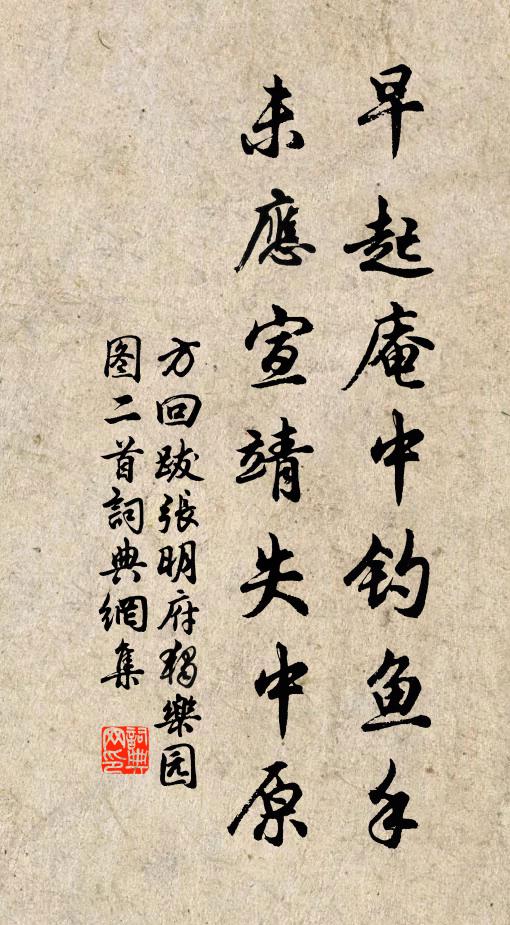 早起庵中钓鱼手
未應宣靖失中原
方回跋張明府獨樂园
图二首詞典網集
詞典网印